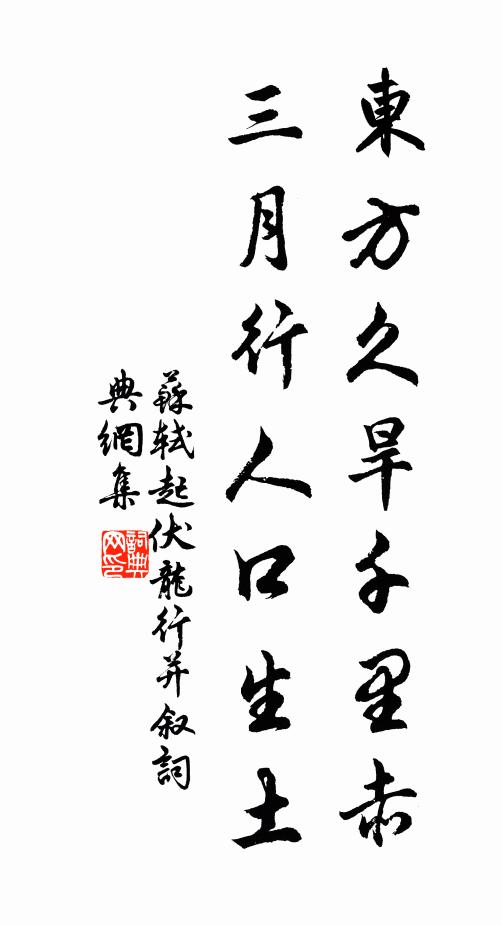 東方久旱千里赤
三月行人口生土
蘇軾起伏龍行并叙詞
典網集
詞典网印